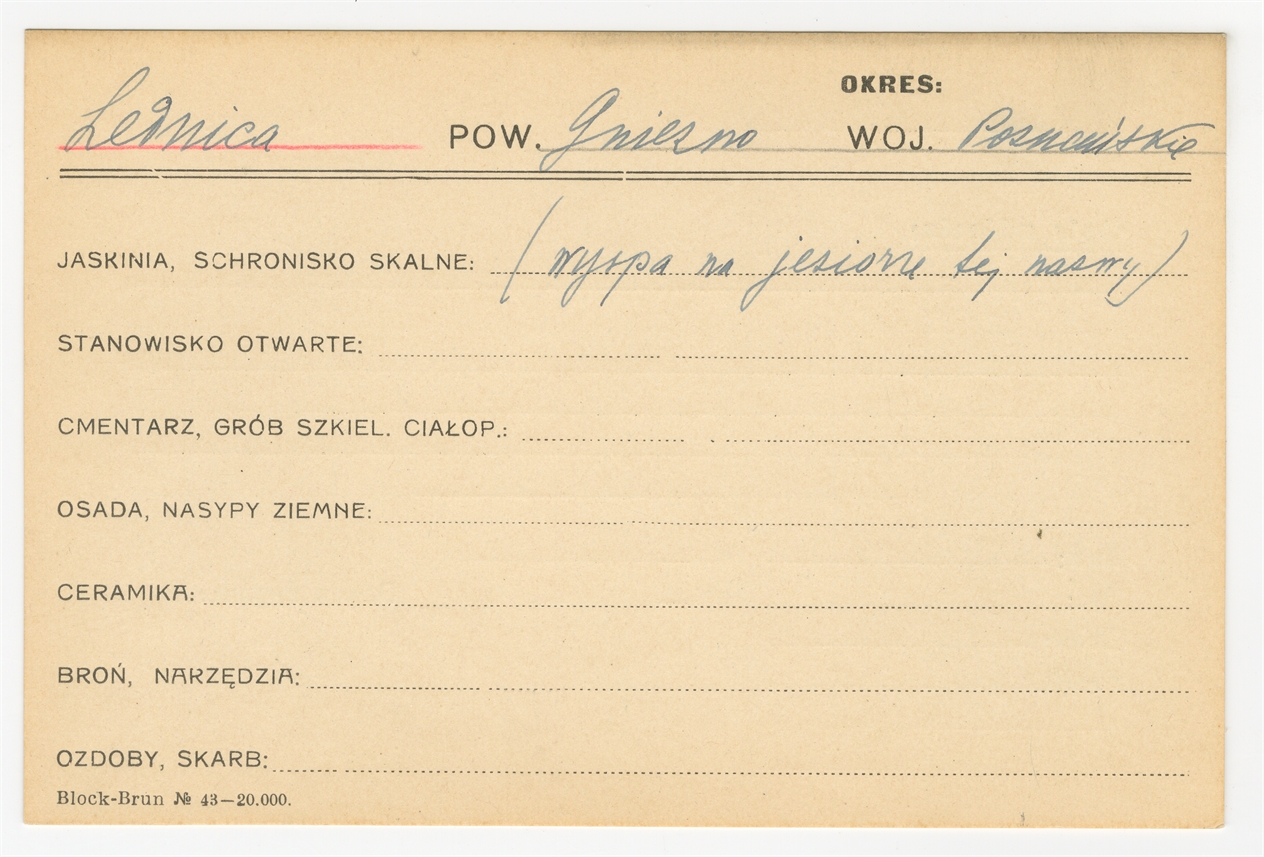 OKRES:
Lednica POW. Gniezno WOJ. Poznańskie
JASKINIA, SCHRONISKO SKALNE: (wyspa na jeziorze tej nazwy)
STANOWISKO OTWARTE:
CMENTARZ, GRÓB SZKIEL. CIAŁOP.:
OSADA, NASYPY ZIEMNE:
CERAMIKA:
BROŃ, NARZĘDZIA:
OZDOBY, SKARB:
Block-Brun № 43—20.000.